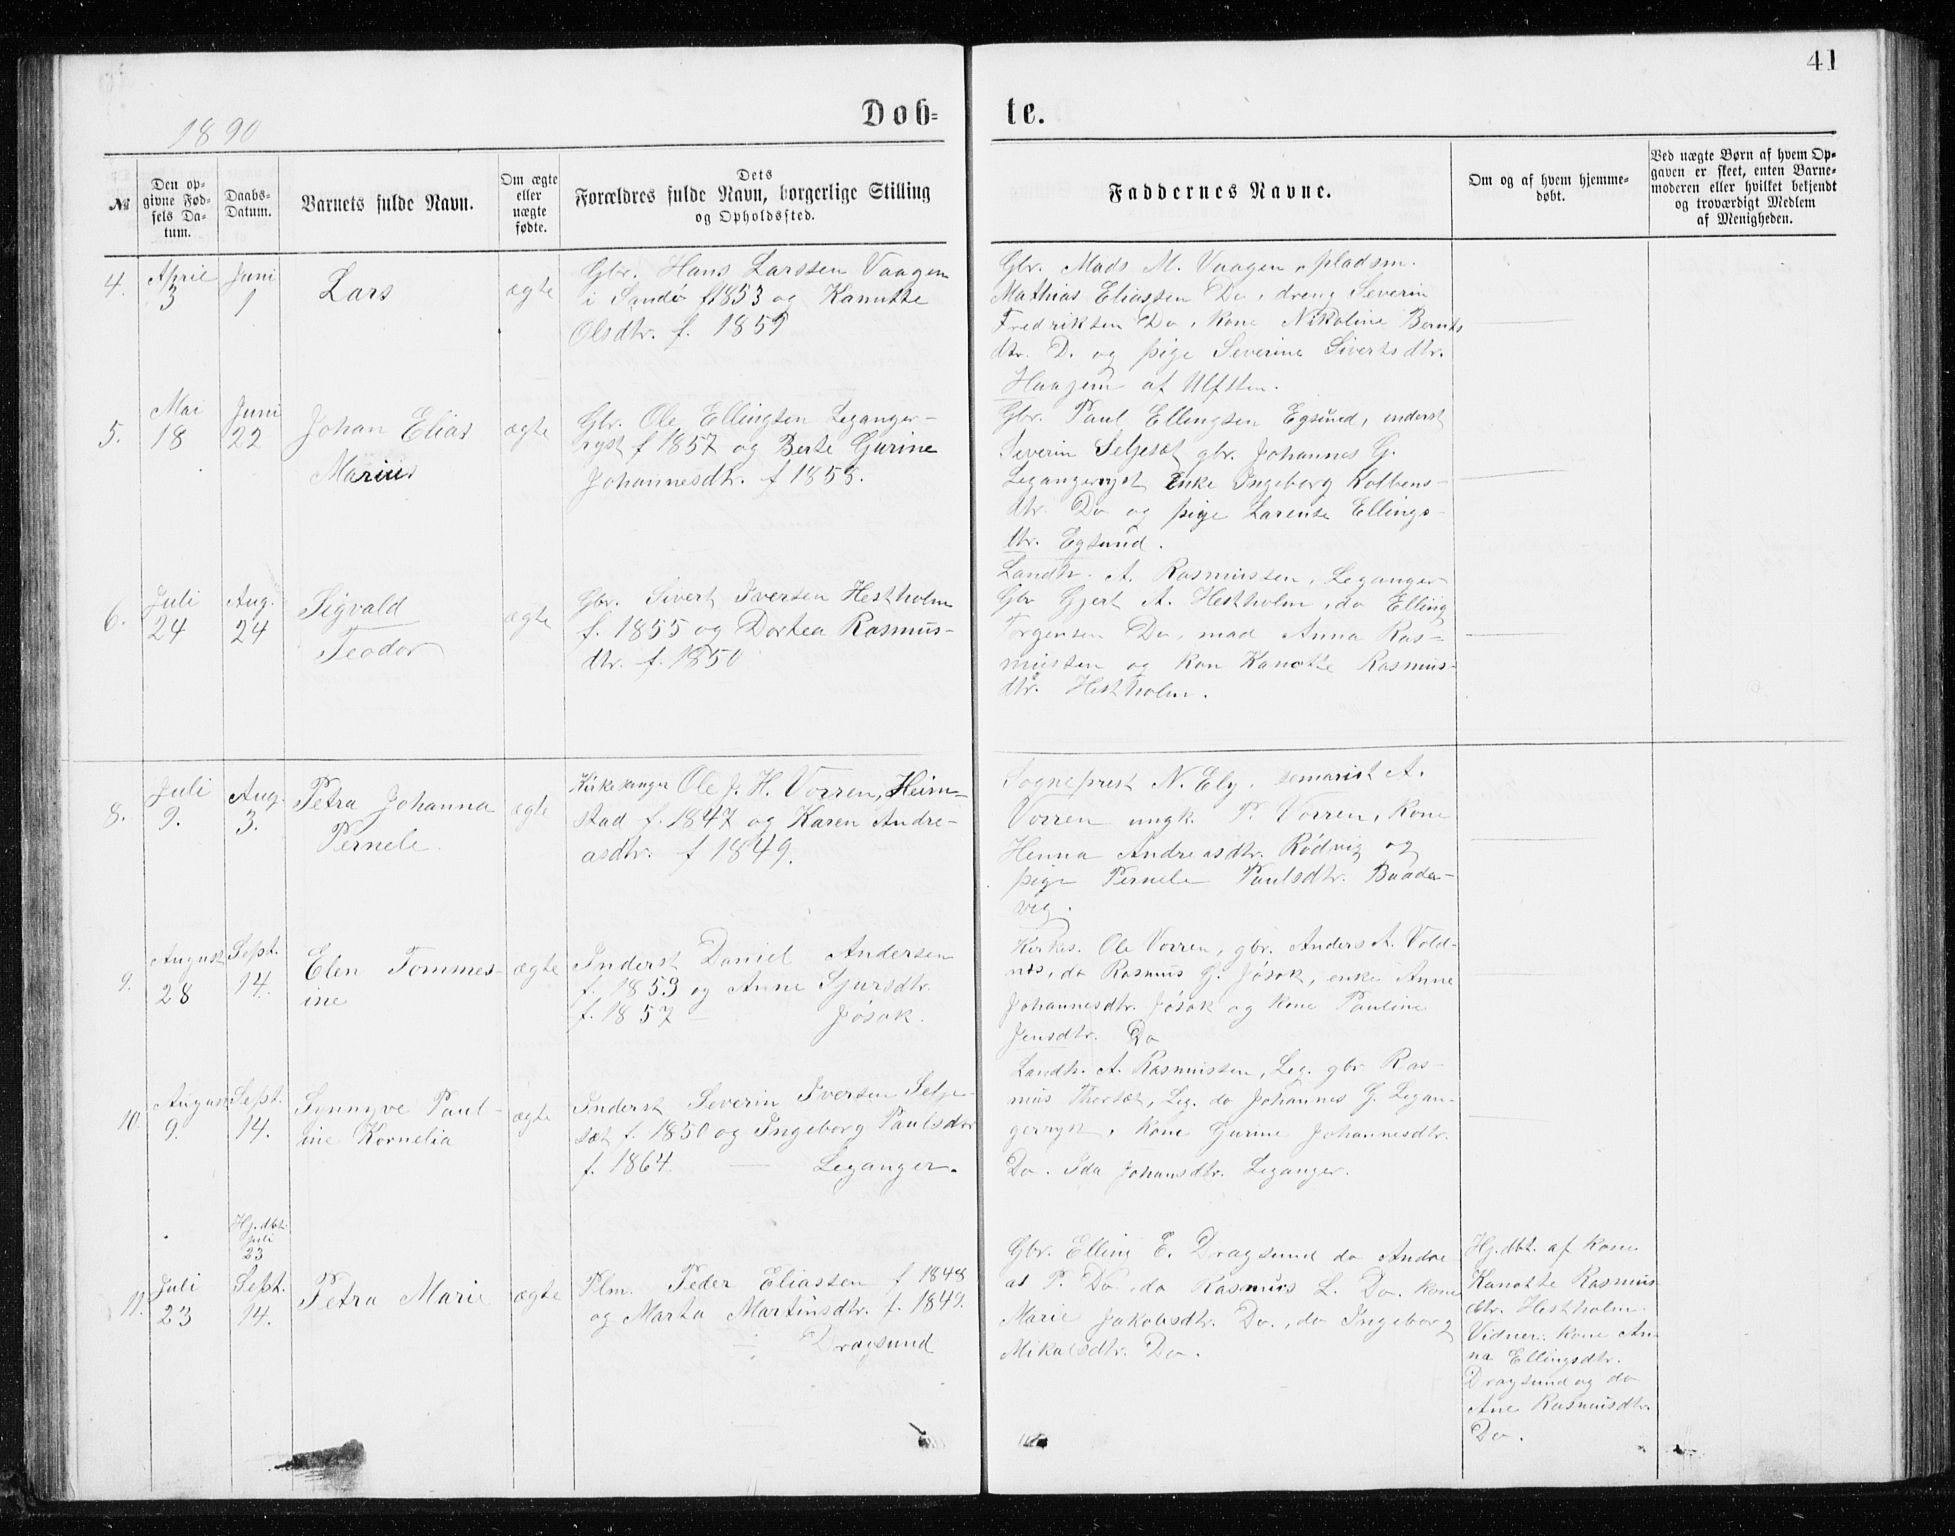 41
1890
Døb=
te.
№
Den op-
givne Fød-
sels Da-
tum.
Daabs-
Datum.
Barnets fulde Navn.
Om ægte
eller
uægte
fødte.
Dets
Forældres fulde Navn, borgerlige Stilling
og Opholdssted.
Faddernes Navne.
Om og af hvem hjemme-
døbt.
Ved uægte Børn af hvem Op-
gaven er skeet, enten Barne-
moderen eller hvilket bekjendt
og troværdigt Medlem
af Menigheden.
4.
April
3
Juni
1
Lars
ægte
Gbr. Hans Larssen Vaagen
i Sandö f 1853 og Kanutte
Olsdtr. f. 1859
Gbr. Mads M. Vaagen, pladsm.
Mathias Eliassen Do, dreng Severin
Fredriksen Do, kone Nikoline Bernts
dtr. D. og pige Severine Sivertsdtr.
Haajem af Ulfsten.
5.
Mai
18
Juni
22
Johan Elias
Marius
ægte
Gbr. Ole Ellingsen Leganger-
ryst f 1857 og Berte Gurine
Johannesdtr. f 1855.
Gbr. Paul Ellingsen Egsund, inderst
Severin Seljesæt gbr. Johannes G.
Legangerryst enke Ingeborg Kolbens-
dtr. Do og pige Larense Ellings-
dtr. Egsund.
6.
Juli
24
Aug.
24
Sigvald
Teodor
ægte
Gbr. Sivert Iversen Hestholm
f. 1855 og Dortea Rasmus-
dtr. f. 1850
Landh. A. Rasmussen, Leganger
Gbr Gjert A. Hestholm, do Elling
Jørgensen Do, mad Anna Ras-
mussen og kon Kanotte Rasmus-
dtr. Hestholm.
8.
Juli
9.
Aug.
3.
Petra Johanna
Pernele.
ægte
Kirkesanger Ole J. H. Vorren, Heim-
stad f. 1847 og Karen Andre-
asdtr. f 1849.
Sogneprest N. Ely, semarist A.
Vorren ungk. P. Vorren, Kone
Henna Andreasdtr. Rødvig og
pige Pernele Paulsdtr. Baade-
vig.
9.
August
28
Sept.
14.
Elen Tommes-
ine
ægte
Inderst Daniel Andersen
f. 1859 og Anne Sjursdtr.
f. 1857 - Jøsok.
Kirkes. Ole Vorren, gbr. Anders A. Vold-
nes, do Rasmus G. Jøsok, enke Anne
Johannesdtr. Jøsok og kone Pauline
Jensdtr. Do
10.
August
9.
Sept.
14.
Synnyve Paul-
ine Kornelia
ægte
Inderst Severin Iversen Selje-
sæt f. 1850 og Ingeborg Paulsdtr
f. 1864. - Leganger.
Landh. A. Rasmussen, Leg. gbr. Ras-
mus Thorsæt, Leg. do Johannes G. Legan-
gerryst, kone Gurine Johannesdtr.
Do. Ida Johansdtr. Leganger.
11.
Juli
23
Hj. dbt.
Juli
23
Sept.
14.
Petra Marie
ægte
Plm. Peder Eliassen f 1848
og Marta Martinsdtr. f. 1849.
- Dragsund
Gbr. Elling E. Dragsund do Andre
as P. Do, do Rasmus L. Do. kone
Marie Jakobsdtr. Do., do Ingeborg
Mikalsdtr. Do.
Hj. dbt. af kone
Kanotte Rasmus
dtr. Hestholm.
Vidner: kone An-
na Ellingsdtr.
Dragsund og do
Ane Rasmusdtr.
Do.